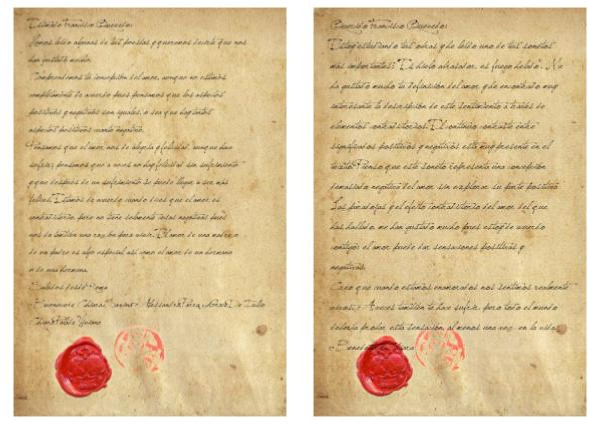 Estimado Francisco Quevedo:
Hemos leído algunas de tus poesías y queremos decirle que nos
han gustado mucho.
Comprendemos tu concepción del amor, aunque no estamos
completamente de acuerdo pues pensamos que los aspectos
positivos y negativos son iguales, o sea que hay tantos
aspectos positivos cuanto negativos.
Pensamos que el amor nos da alegría y felicidad, aunque hace
sufrir; pensamos que a veces no hay felicidad sin sufrimiento
y que después de un sufrimiento se puede llegar a ser más
felices. Estamos de acuerdo cuando dices que el amor es
contradictorio, pero no tiene solamente cosas negativas pues
nos da también una razón para vivir. El amor de una madre o
de un padre es algo especial así como el amor de un hermano
o de una hermana.
Saludos desde Roma

Querido Francisco Quevedo:
Estoy estudiando tus obras y he leído uno de tus sonetos
más importantes: "Es hielo abrasador, es fuego helado". Me
ha gustado mucho tu definición del amor, he encontrado muy
interesante la descripción de este sentimiento a través de
elementos contradictorios. El continuo contraste entre
significados positivos y negativos está muy presente en el
texto. Pienso que este soneto representa una concepción
demasiado negativa del amor, sin explorar su parte positiva.
Las paradojas y el efecto contradictorio del amor, del que
has hablado, me han gustado mucho pues estoy de acuerdo
contigo: el amor puede dar sensaciones positivas y
negativas.
Creo que cuando estamos enamorados nos sentimos realmente
vivos. A veces también te hace sufrir, pero todo el mundo
debería probar esta sensación al menos una vez en la vida.